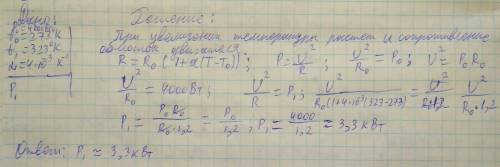 Дано:
P₀ = 4000 Вт
t₀ = 273°К
t₁ = 323°К
α = 4·10⁻³ К⁻¹
P₁
Решение:
При увеличении температуры растет и сопротивление
R = R₀ (1 + α(T - T₀)); P = U²/R; U²/R₀ = P₀; U² = P₀R₀
U²/R₀ = 4000 Вт; U²/R = P₁; U²/R₀(1+4·10⁻³(323-273)) = U²/R₀·1,2
P₁ = P₀R₀/R₀·1,2 = P₀/1,2; P₁ = 4000/1,2 ≈ 3,3 кВт
Ответ: P₁ ≈ 3,3 кВт